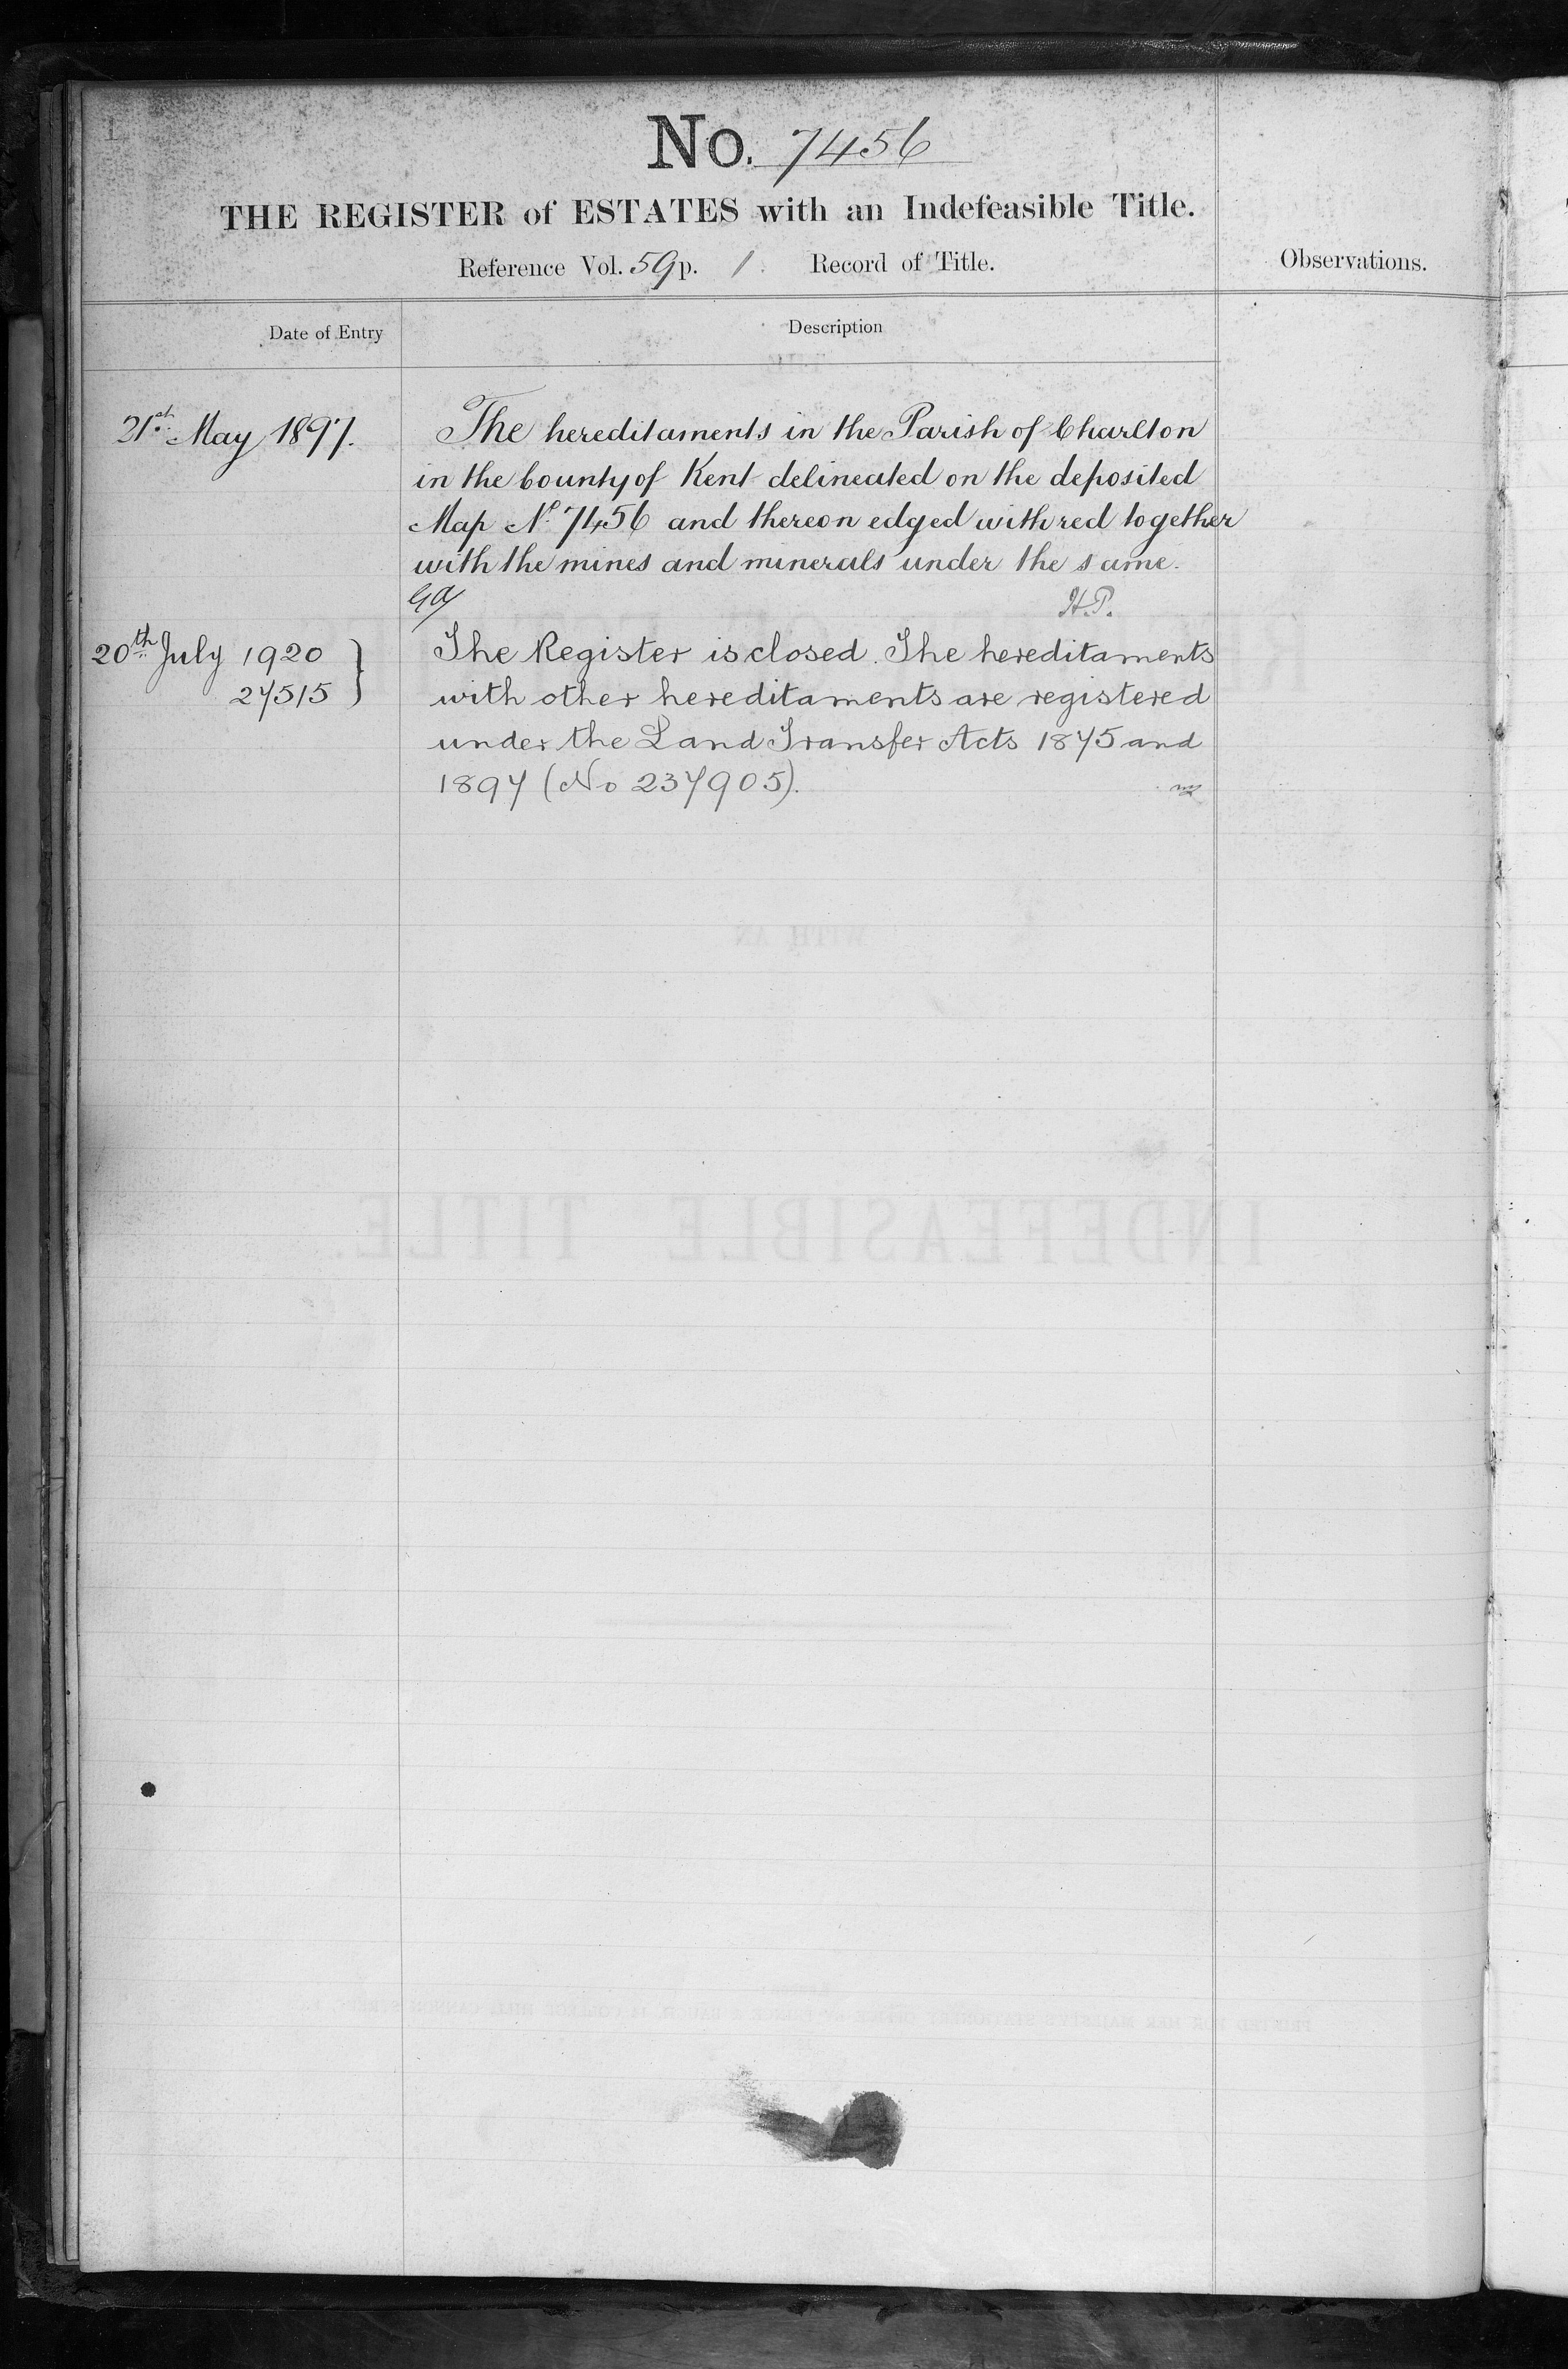 No. 7456
THE REGISTER of ESTATES with an Indefeasible Title.
Reference Vol. 59 p. 1. Record of Title.
Observations.
Date of Entry
Description
21st May 1897.
The hereditaments in the Parish of Charlton
in the County of Kent delineated on the deposited
Map No. 7456 and thereon edged with red together
with the mines and minerals under the same.
H.P.
20th July 1920
27515
The Register is closed. The hereditaments
with other hereditaments are registered
under the Land Transfer Acts 1875 and
1897 (No 237905).
WITH AN
INDEFEASIBLE TITLE.